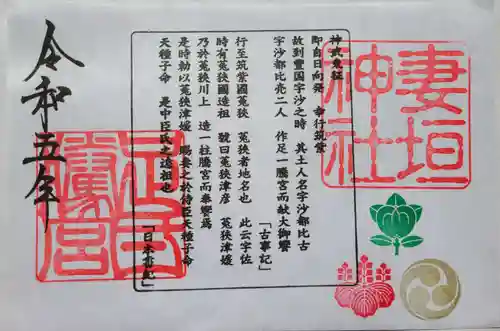 妻垣
神社
神武東征
即自日向発 幸行筑紫
故到豊国宇沙之時 其土人名宇沙都比古
宇沙都比売二人 作足一騰宮而献大御饗
「古事記」
行至筑紫國菟狭 菟狭者地名也 此云宇佐
時有菟狭國造祖 號曰菟狭津彦 菟狭津媛
乃於菟狭川上 造一柱騰宮而奉饗焉
是時勅以菟狭津媛 賜妻之於侍臣天種子命
天種子命 是中臣氏之遠祖也
「日本書紀」
足一
騰宮
令和五年